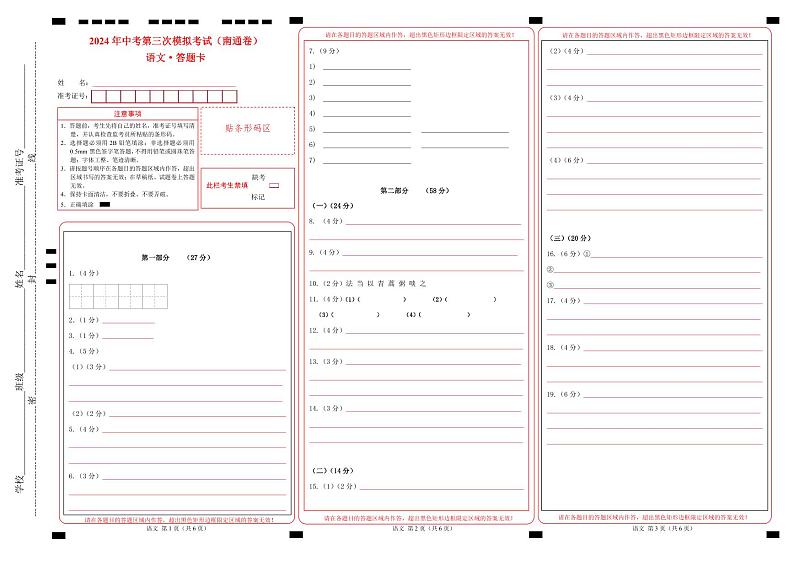 2024 年中考第三次模拟考试（南通卷）
语文·答题卡
姓 名：
准考证号：
注意事项
1．答题前，考生先将自己的姓名，准考证号填写清
楚，并认真检查监考员所粘贴的条形码。
2．选择题必须用2B铅笔填涂；非选择题必须用
0.5mm 黑色签字笔答题，不得用铅笔或圆珠笔答
题；字体工整、笔迹清晰。
3．请按题号顺序在各题目的答题区域内作答，超出
区域书写的答案无效；在草稿纸、试题卷上答题
无效。
4．保持卡面清洁，不要折叠、不要弄破。
5．正确填涂
贴条形码区
此栏考生禁填
缺考
标记
学校
班级
姓名
准考证号
密
封
线
第一部分 （27 分）
1.（4 分）
2.（1 分）
3.（1 分）
4.（5 分）
（1）（3 分）
（2）（2 分）
5.（4 分）
6.（3 分）
请在各题目的答题区域内作答，超出黑色矩形边框限定区域的答案无效！
语文 第 1 页（共 6 页）
请在各题目的答题区域内作答，超出黑色矩形边框限定区域的答案无效！
7.（9 分）
1)
2)
3)
4)
5)
6)
7)
第二部分 （58 分）
（一）（24 分）
8. （4 分）
9. （4 分）
10.（2 分）法 当 以 青 蒿 粥 啖 之
11.（4 分）(1)（ ） (2)（ ）
(3)（ ） (4)（ ）
12.（4 分）
13.（3 分）
14.（3 分）
（二）（14 分）
15.（1）（2 分）
请在各题目的答题区域内作答，超出黑色矩形边框限定区域的答案无效！
语文 第 2 页（共 6 页）
请在各题目的答题区域内作答，超出黑色矩形边框限定区域的答案无效！
（2）（4 分）
（3）（4 分）
（4）（6 分）
（三）（20 分）
16.（6 分）①
②
③
17.（4 分）
18.（4 分）
19.（6 分）
请在各题目的答题区域内作答，超出黑色矩形边框限定区域的答案无效！
语文 第 3 页（共 6 页）